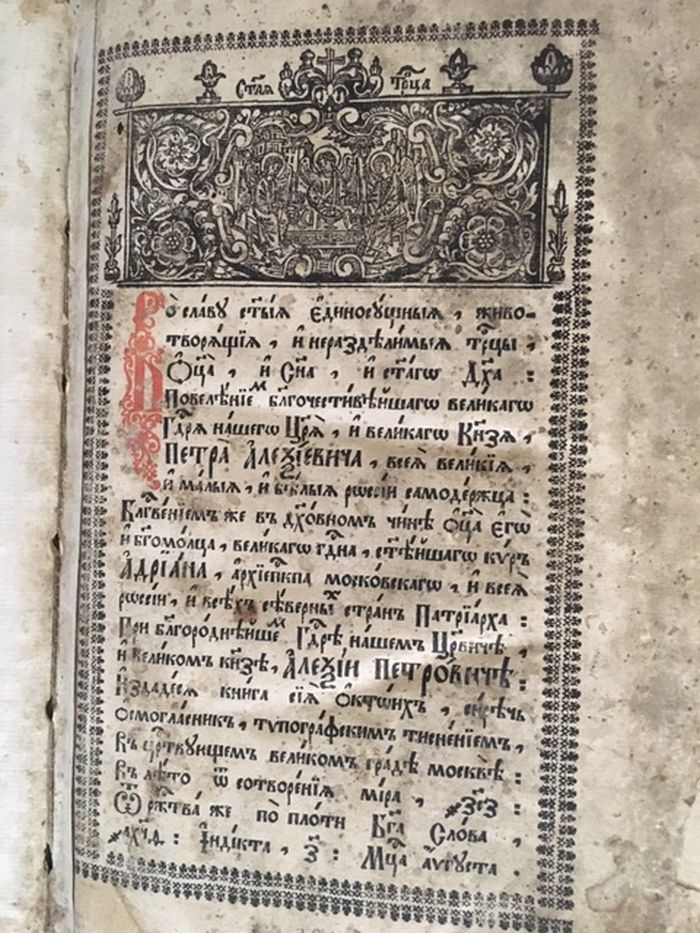 Ст҃ая Трⷪ҇ца
Во̀ славꙋ ст҃ы́ѧ є҆диносꙋ́щныѧ, живо-
творѧ́щїѧ, и҆ нераздѣли́мыѧ трⷪ҇цы,
Ѻ҆ц҃а̀, и҆ Сн҃а, и҆ ст҃а́гѡ Дх҃а:
Повелѣ́нїемъ бл҃гочести́вѣйшагѡ вели́кагѡ
Гдⷭ҇рѧ на́шегѡ Цр҃ѧ̀, и҆ вели́кагѡ Кнѧ́зѧ,
ПЕТРА̀ А҆ЛЕѮІ́ЕВИЧА, всеѧ̀ вели́кїѧ,
и҆ ма́лыѧ, и҆ бѣ́лыѧ рѡссі́и самоде́ржца:
Блгⷭ҇ве́нїемъ же въ дх҃о́вномъ чи́нѣ ѻ҆ц҃а̀ є҆гѡ̀
и҆ бг҃омо́лца, вели́кагѡ гдⷭ҇и́на, ст҃ѣ́йшагѡ кѵ́ръ
А҆ДРЇА́НА, а҆рхїепⷭ҇кпа моско́вскагѡ, и҆ всеѧ̀
рѡссі́и, и҆ всѣ́хъ сѣ́верныхъ стра́нъ Патрїа́рха:
При бл҃горо́днѣйшемъ Гдⷭ҇рѣ на́шемъ Цр҃е́вичѣ,
и҆ вели́комъ кнѧ́зѣ, А҆ЛЕѮІ́И ПЕТРО́ВИЧѢ:
И҆здаде́сѧ кни́га сїѧ̀ ѻ҆кто́ихъ, си́рѣчь
ѻ҆смогла́сникъ, тѷпогра́фскимъ тисне́нїемъ,
въ црⷭ҇твꙋющемъ вели́комъ гра́дѣ москвѣ̀:
Въ лѣ́то ѿ сотворе́нїѧ мі́ра, ҂зс҃з:
Ѿ ржⷭ҇тва̀ же по̀ пло́ти Бг҃а Сло́ва,
҂ах҃ч҃ѳ: І҆ндї́кта, з҃: Мцⷭ҇а а҆́ѵгꙋста.